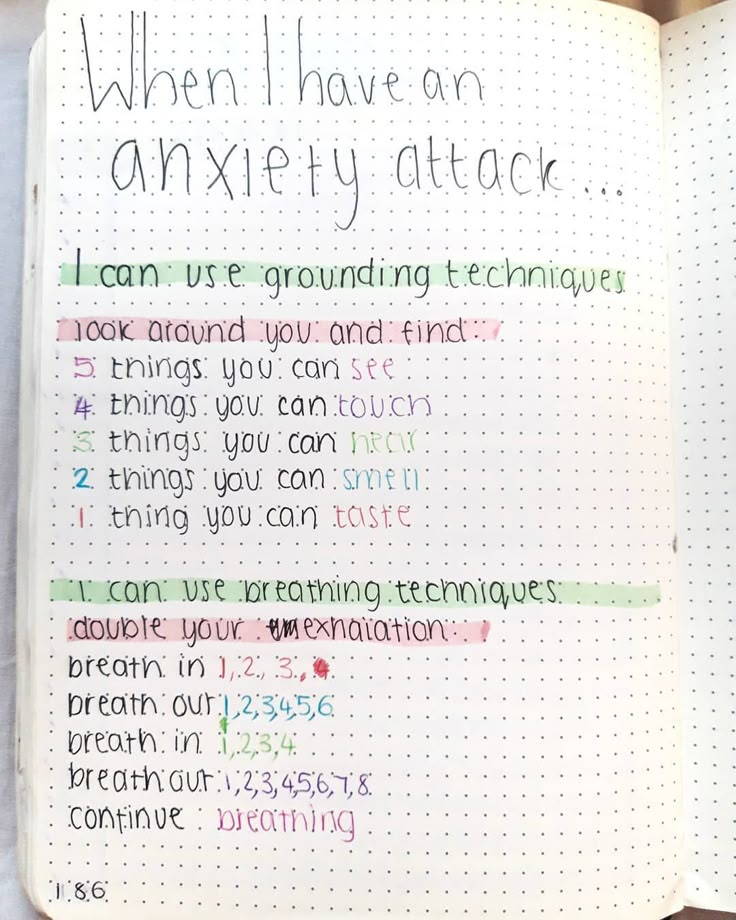 When I have an
anxiety attack...
I can use grounding techniques
look around you and find:
5 things you can see
4 things you can touch
3 things you can hear
2 things you can smell
1 thing you can taste
I can use breathing techniques
double your exhalation
breath in 1, 2, 3,
breath out 1,2,3,4,5,6
breath in 1,2,3,4
breath out 1,2,3,4,5,6,7,8
continue breathing
186